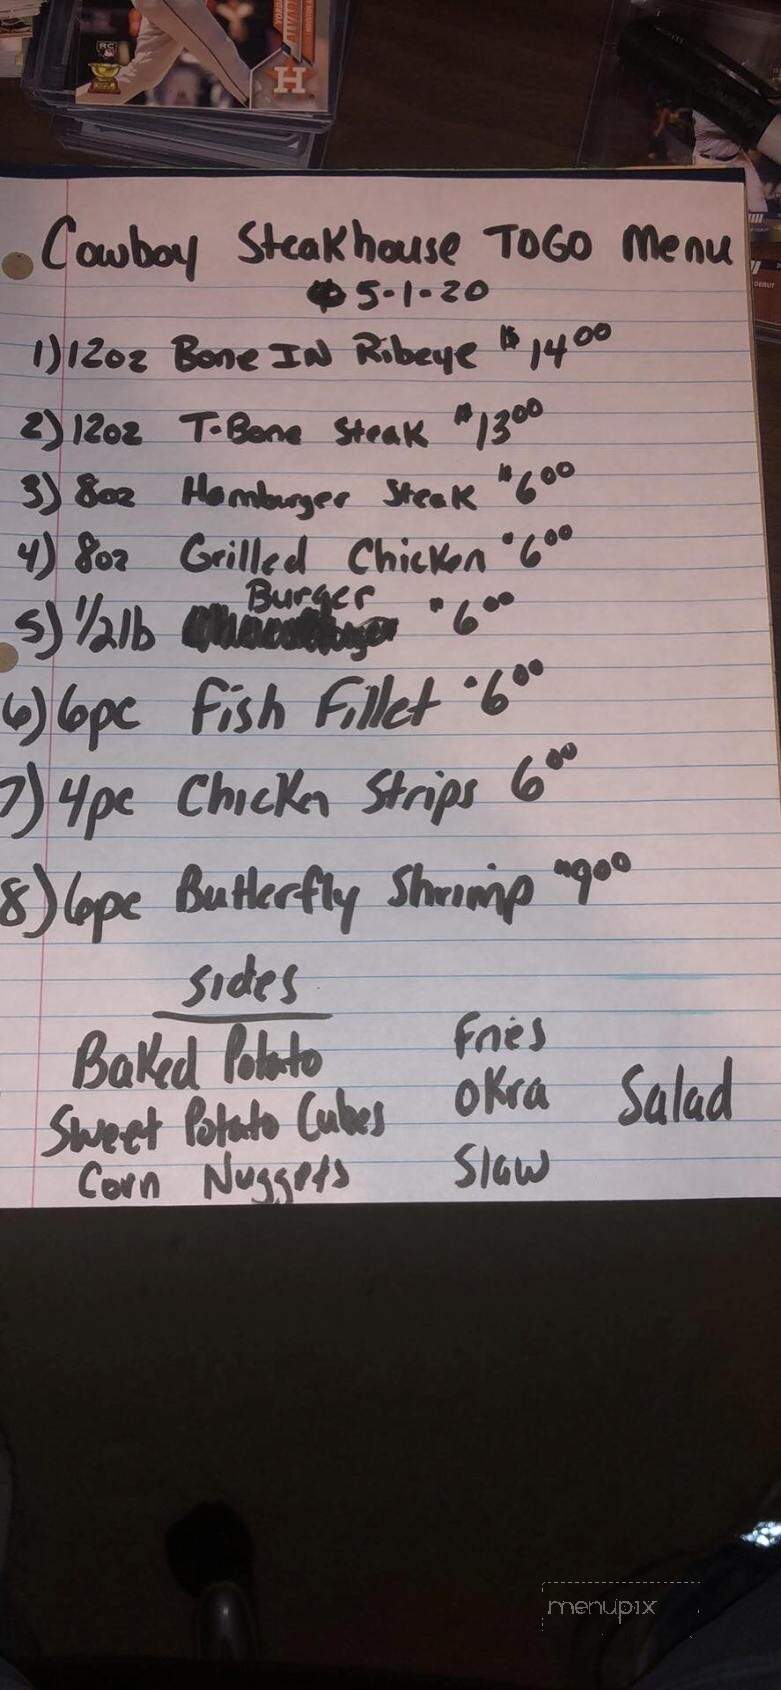 RC
H
DEBUT
Cowboy Steakhouse TOGO Menu
5-1-20
1) 12oz Bone IN Ribeye $14.00
2) 12oz T-Bone Steak $13.00
3) 8oz Hamburger Steak $6.00
4) 8oz Grilled Chicken $6.00
5) 1/2lb Burger $6.00
6) 6pc Fish Fillet $6.00
7) 4pc Chicken Strips 6.00
8) 6pc Butterfly Shrimp $9.00
Sides
Baked Potato Fries
Sweet Potato Cubes Okra Salad
Corn Nuggets Slaw
menupix